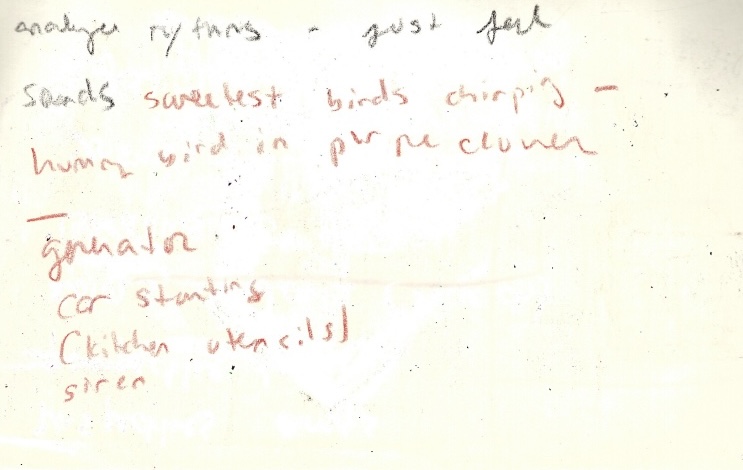 analyze rythms - just feel
sounds sweetest birds chirping -
humming bird in purple clover
—
generator
car starting
(kitchen utencils)
siren